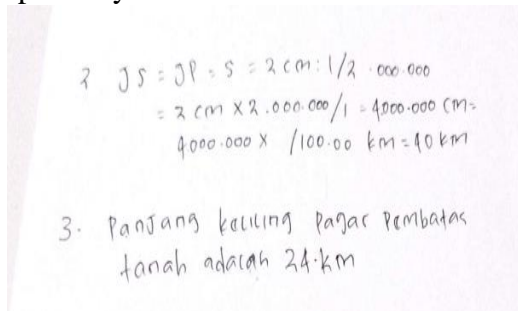 2 JS = JP = S = 2 cm : 1/2.000.000
= 2 cm x 2.000.000/1 = 4000.000 cm =
4000.000 x /100.00 km = 40 km
3. Panjang keliling pagar pembatas
tanah adalah 24.km